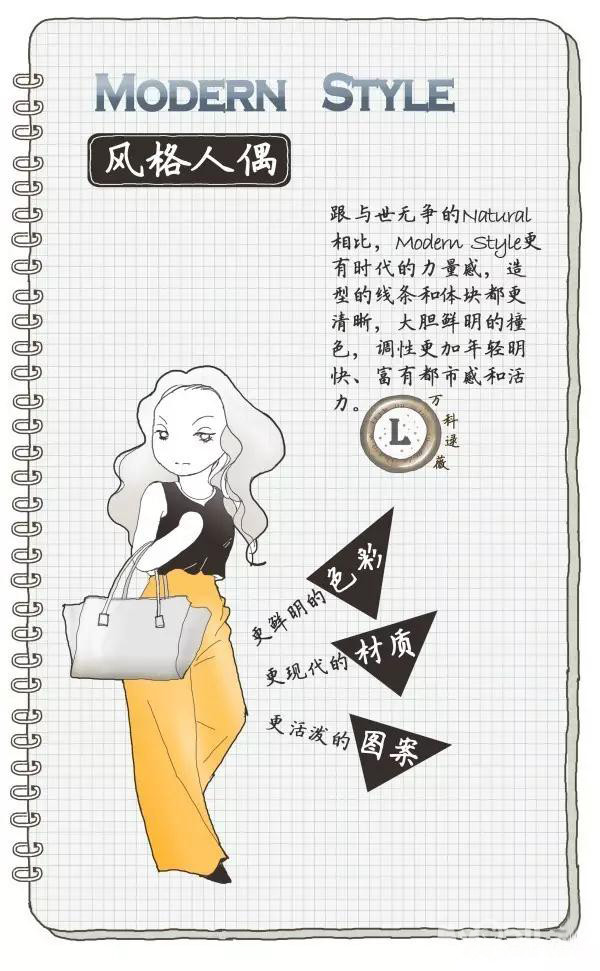 MODERN STYLE
风格人偶
跟与世无争的Natural
相比，Modern Style更
有时代的力量感，造
型的线条和体块都更
清晰，大胆鲜明的撞
色，调性更加年轻明
快、富有都市感和活
力。
L
万科逯薇
更鲜明的色彩
更现代的材质
更活泼的图案